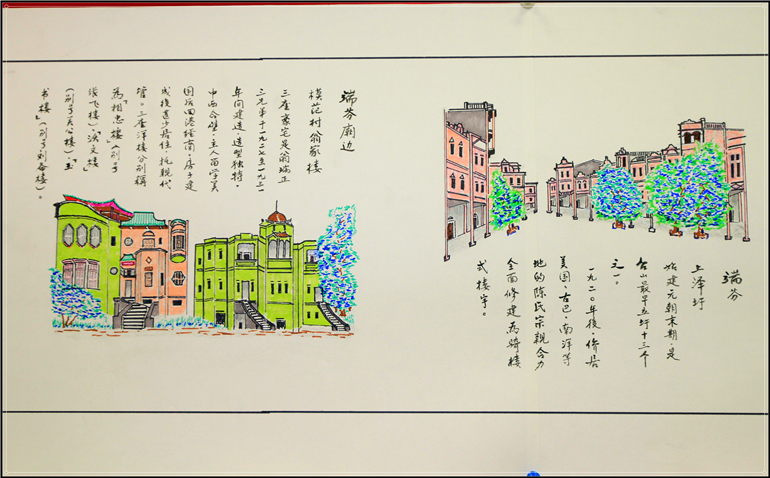 端芬
上泽圩
始建元朝末期，是
台山最早立圩十三个
之一。
一九二〇年後，侨居
美国、古巴、南洋等
地的陈氏宗亲合力
全面修建為骑楼
式楼宇。
端芬庙边
模范村翁家楼
三座豪宅是翁瑞正
三兄弟于一九二七至一九三一
年间建造，造型独特，
中西合壁。主人留学美
国后回港经商，房子建
成後甚少居住，托亲代
管。三座洋楼分别称
為「相忠楼」（别号
张飞楼）、「沃文楼」
（别号关公楼）、「玉
书楼」（别号刘备楼）。